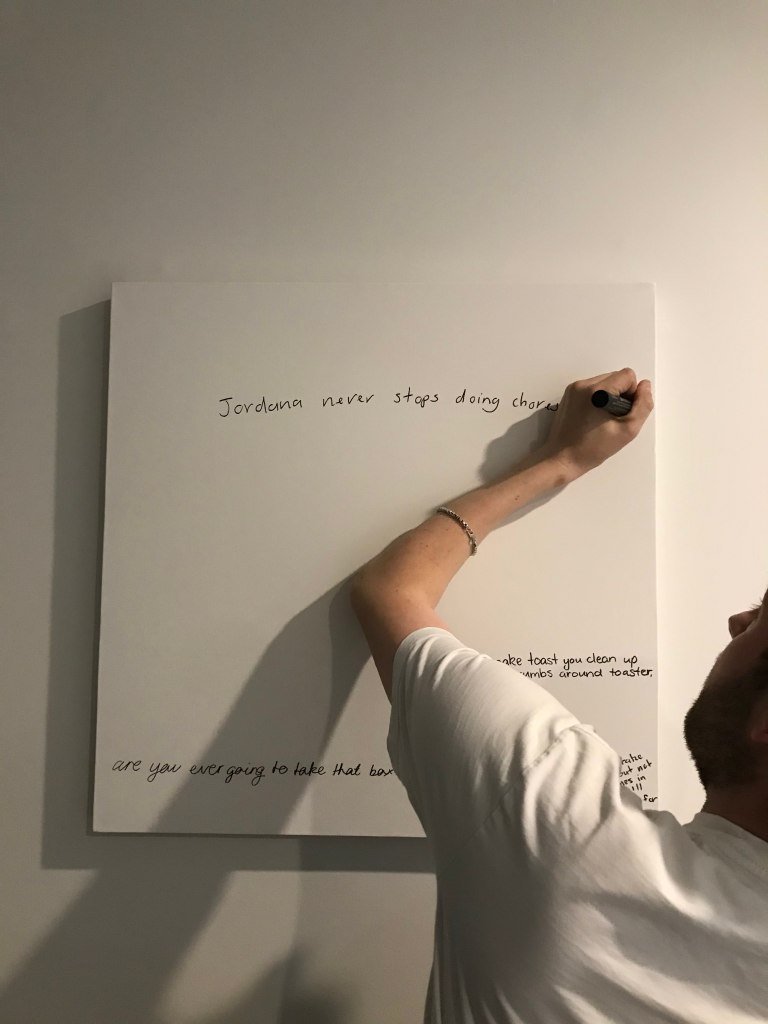 Jordana never stops doing chores
toast you clean up
around toaster.
are you ever going to take that box
but not
in
I'll
for